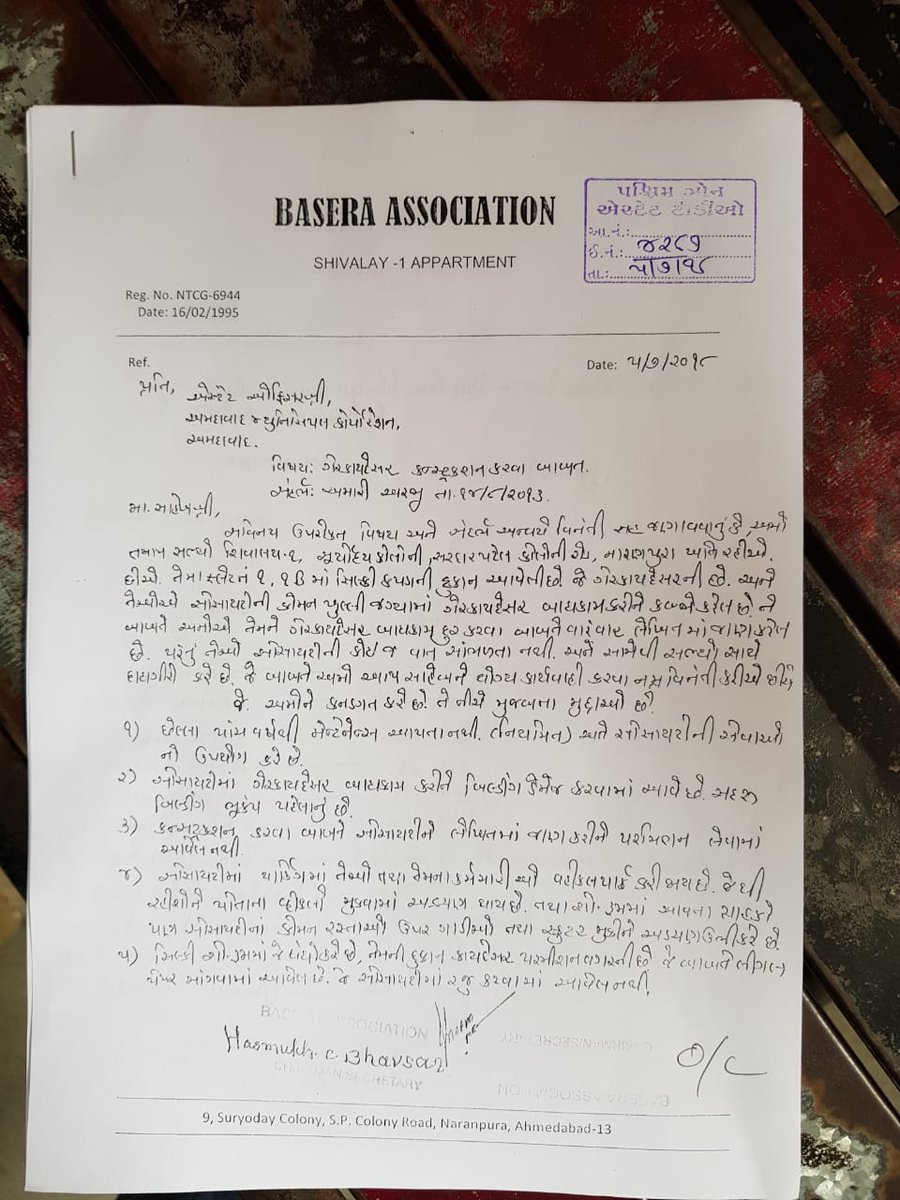 BASERA ASSOCIATION
SHIVALAY -1 APPARTMENT
પશ્ચિમ ઝોન
એસ્ટેટ ટીડીઓ
આ.નં.:
ઈ.નં.: ૪૨૮૧
તા.: ૫/૭/૧૮
Reg. No. NTCG-6944
Date: 16/02/1995
Ref.
Date: ૫/૭/૨૦૧૮
પ્રતિ,
એસ્ટેટ ઓફિસરશ્રી,
અમદાવાદ મ્યુનિસિપલ કોર્પોરેશન,
અમદાવાદ.
વિષય: ગેરકાયદેસર કન્સ્ટ્રકશન કરવા બાબત.
સંદર્ભ: અમારી અરજી તા. ૧૪/૮/૨૦૧૩.
મા. સાહેબશ્રી,
સવિનય ઉપરોક્ત વિષય અને સંદર્ભ અન્વયે વિનંતી સહ જણાવવાનું કે, અમો
તમામ સભ્યો શિવાલય-૧, સૂર્યોદય કોલોની, સરદાર પટેલ કોલોની રોડ, નારણપુરા ખાતે રહીએ
છીએ. તેમાં ફ્લેટ નં ૧, ૧B માં સિલ્કી કપડાની દુકાન આવેલી છે. જે ગેરકાયદેસરની છે. અને
તેઓએ સોસાયટીની કોમન ખુલ્લી જગ્યામાં ગેરકાયદેસર બાંધકામ કરીને કબજો કરેલ છે. તે
બાબતે અમોએ તેમને ગેરકાયદેસર બાંધકામ દુર કરવા બાબતે વારંવાર લેખિત માં જાણ કરેલ
છે. પરંતુ તેઓ સોસાયટીની કોઈ જ વાત સાંભળતા નથી. અને સામેથી સભ્યો સાથે
દાદાગીરી કરે છે. જે બાબતે અમો આપ સાહેબને યોગ્ય કાર્યવાહી કરવા નમ્ર વિનંતી કરીએ છીએ,
જે અમોને કનડગત કરે છે. તે નીચે મુજબના મુદ્દાઓ છે.
૧) છેલ્લા પાંચ વર્ષથી મેન્ટેનેન્સ આપતા નથી. (નિયમિત) અને સોસાયટીની સેવાઓ
નો ઉપયોગ કરે છે.
૨) સોસાયટીમાં ગેરકાયદેસર બાંધકામ કરીને બિલ્ડીંગ ડેમેજ કરવામાં આવે છે. સદર
બિલ્ડીંગ ભૂકંપ પહેલાનું છે.
૩) કન્સ્ટ્રકશન કરવા બાબતે સોસાયટીને લેખિતમાં જાણ કરીને પરમિશન લેવામાં
આવેલ નથી.
૪) સોસાયટીમાં પાર્કિંગમાં તેઓ તથા તેમના કર્મચારીઓ વ્હીકલ પાર્ક કરી જાય છે. જેથી
રહીશોને પોતાના વ્હીકલો મુકવામાં અડચણ થાય છે. તથા શો-રૂમમાં આવતા ગ્રાહકો
પણ સોસાયટીનાં કોમન રસ્તાઓ ઉપર ગાડીઓ તથા સ્કુટર મુકીને અડચણ ઉભી કરે છે.
૫) સિલ્કી શો-રૂમમાં જે ધંધો કરે છે, તેમની દુકાન કાયદેસર પરમીશન વગરની છે જે બાબતે લીગલ
પેપર માંગવામાં આવેલ છે. જે સોસાયટીમાં રજુ કરવામાં આવેલ નથી.
Hasmukh C Bhavsar
O/C
9, Suryoday Colony, S.P. Colony Road, Naranpura, Ahmedabad-13